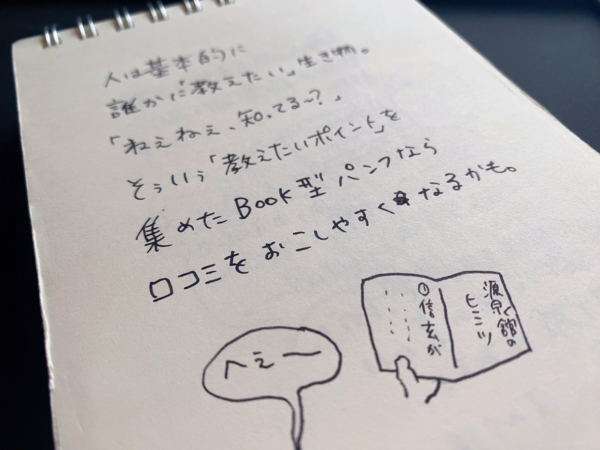 人は基本的に
誰かに「教えたい」生き物。
「ねぇねぇ、知ってる〜?」
そういう「教えたいポイント」を
集めた Book型 パンフなら
口コミを おこしやすく なるかも。
へぇー
源泉館の
ヒミツ
①信玄が